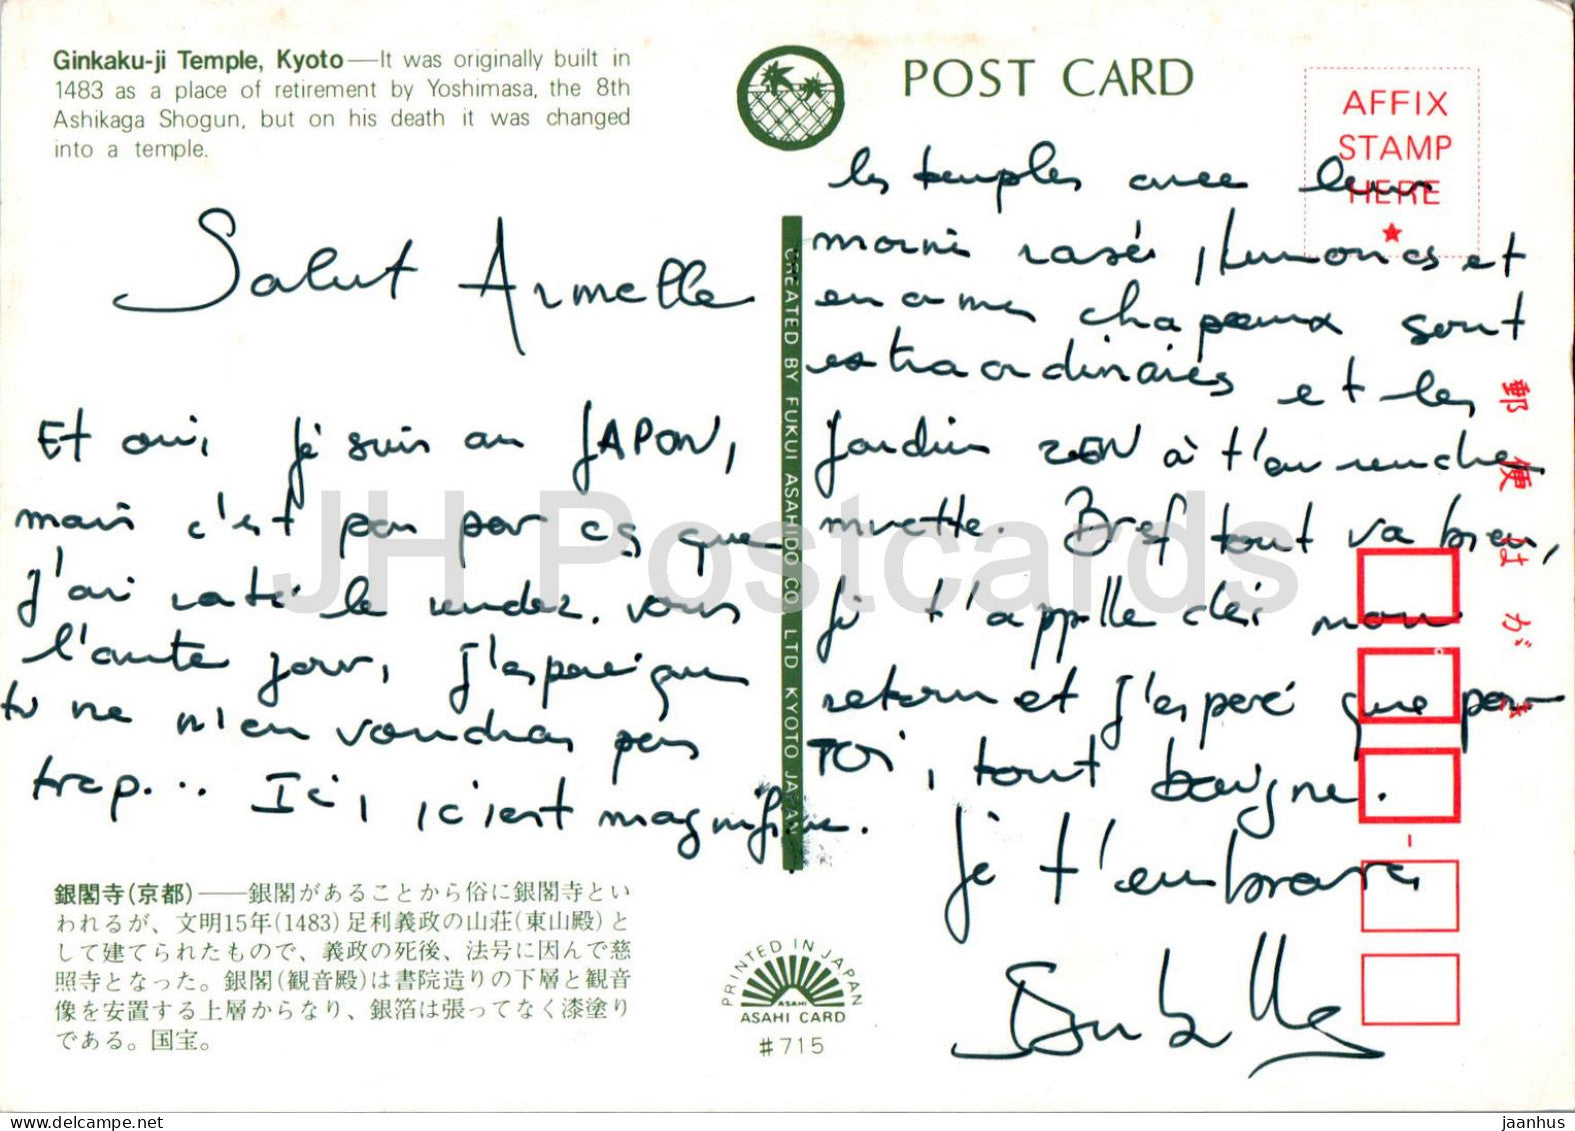 Ginkaku-ji Temple, Kyoto—It was originally built in
1483 as a place of retirement by Yoshimasa, the 8th
Ashikaga Shogun, but on his death it was changed
into a temple.
POST CARD
AFFIX
STAMP
HERE
Salut Armelle
Et oui, je suis au JAPON,
mais c'est pas par ce que
j'ai raté le rendez-vous
l'autre jour, j'espère que
tu ne m'en voudras pas
trop... Ici, c'est magnifique.
les temples avec leurs
moines rasés, kimonos et
en chapeaux sont
extraordinaires et les
jardins ZEN à t'en
mouette. Bref tout va bien,
je t'appelle dès mon
retour et j'espère que pour
TOI, tout baigne.
je t'embrasse
CREATED BY FUKUI ASAHIDO CO LTD KYOTO JAPAN
郵便はがき
銀閣寺(京都)——銀閣があることから俗に銀閣寺とい
われるが、文明15年(1483)足利義政の山荘(東山殿)と
して建てられたもので、義政の死後、法号に因んで慈
照寺となった。銀閣(観音殿)は書院造りの下層と観音
像を安置する上層からなり、銀箔は張ってなく漆塗り
である。国宝。
PRINTED IN JAPAN
ASAHI
ASAHI CARD
#715
JH Postcards
delcampe.net
jaanhus